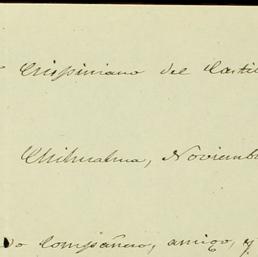 Crispiniano del Casti
Chihuahua, Noviemb
do compañero, amigo, y